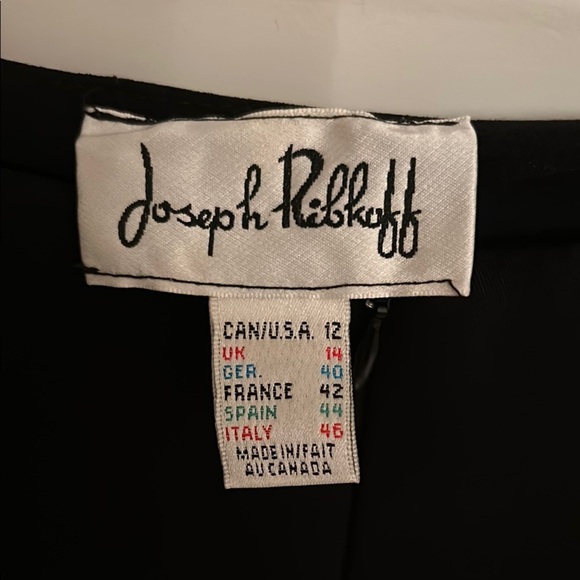 Joseph Ribkoff
CAN/U.S.A. 12
UK 14
GER. 40
FRANCE 42
SPAIN 44
ITALY 46
MADE IN/FAIT
AU CANADA